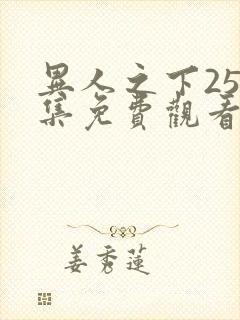 異人之下25
集免費觀看
姜秀蓮